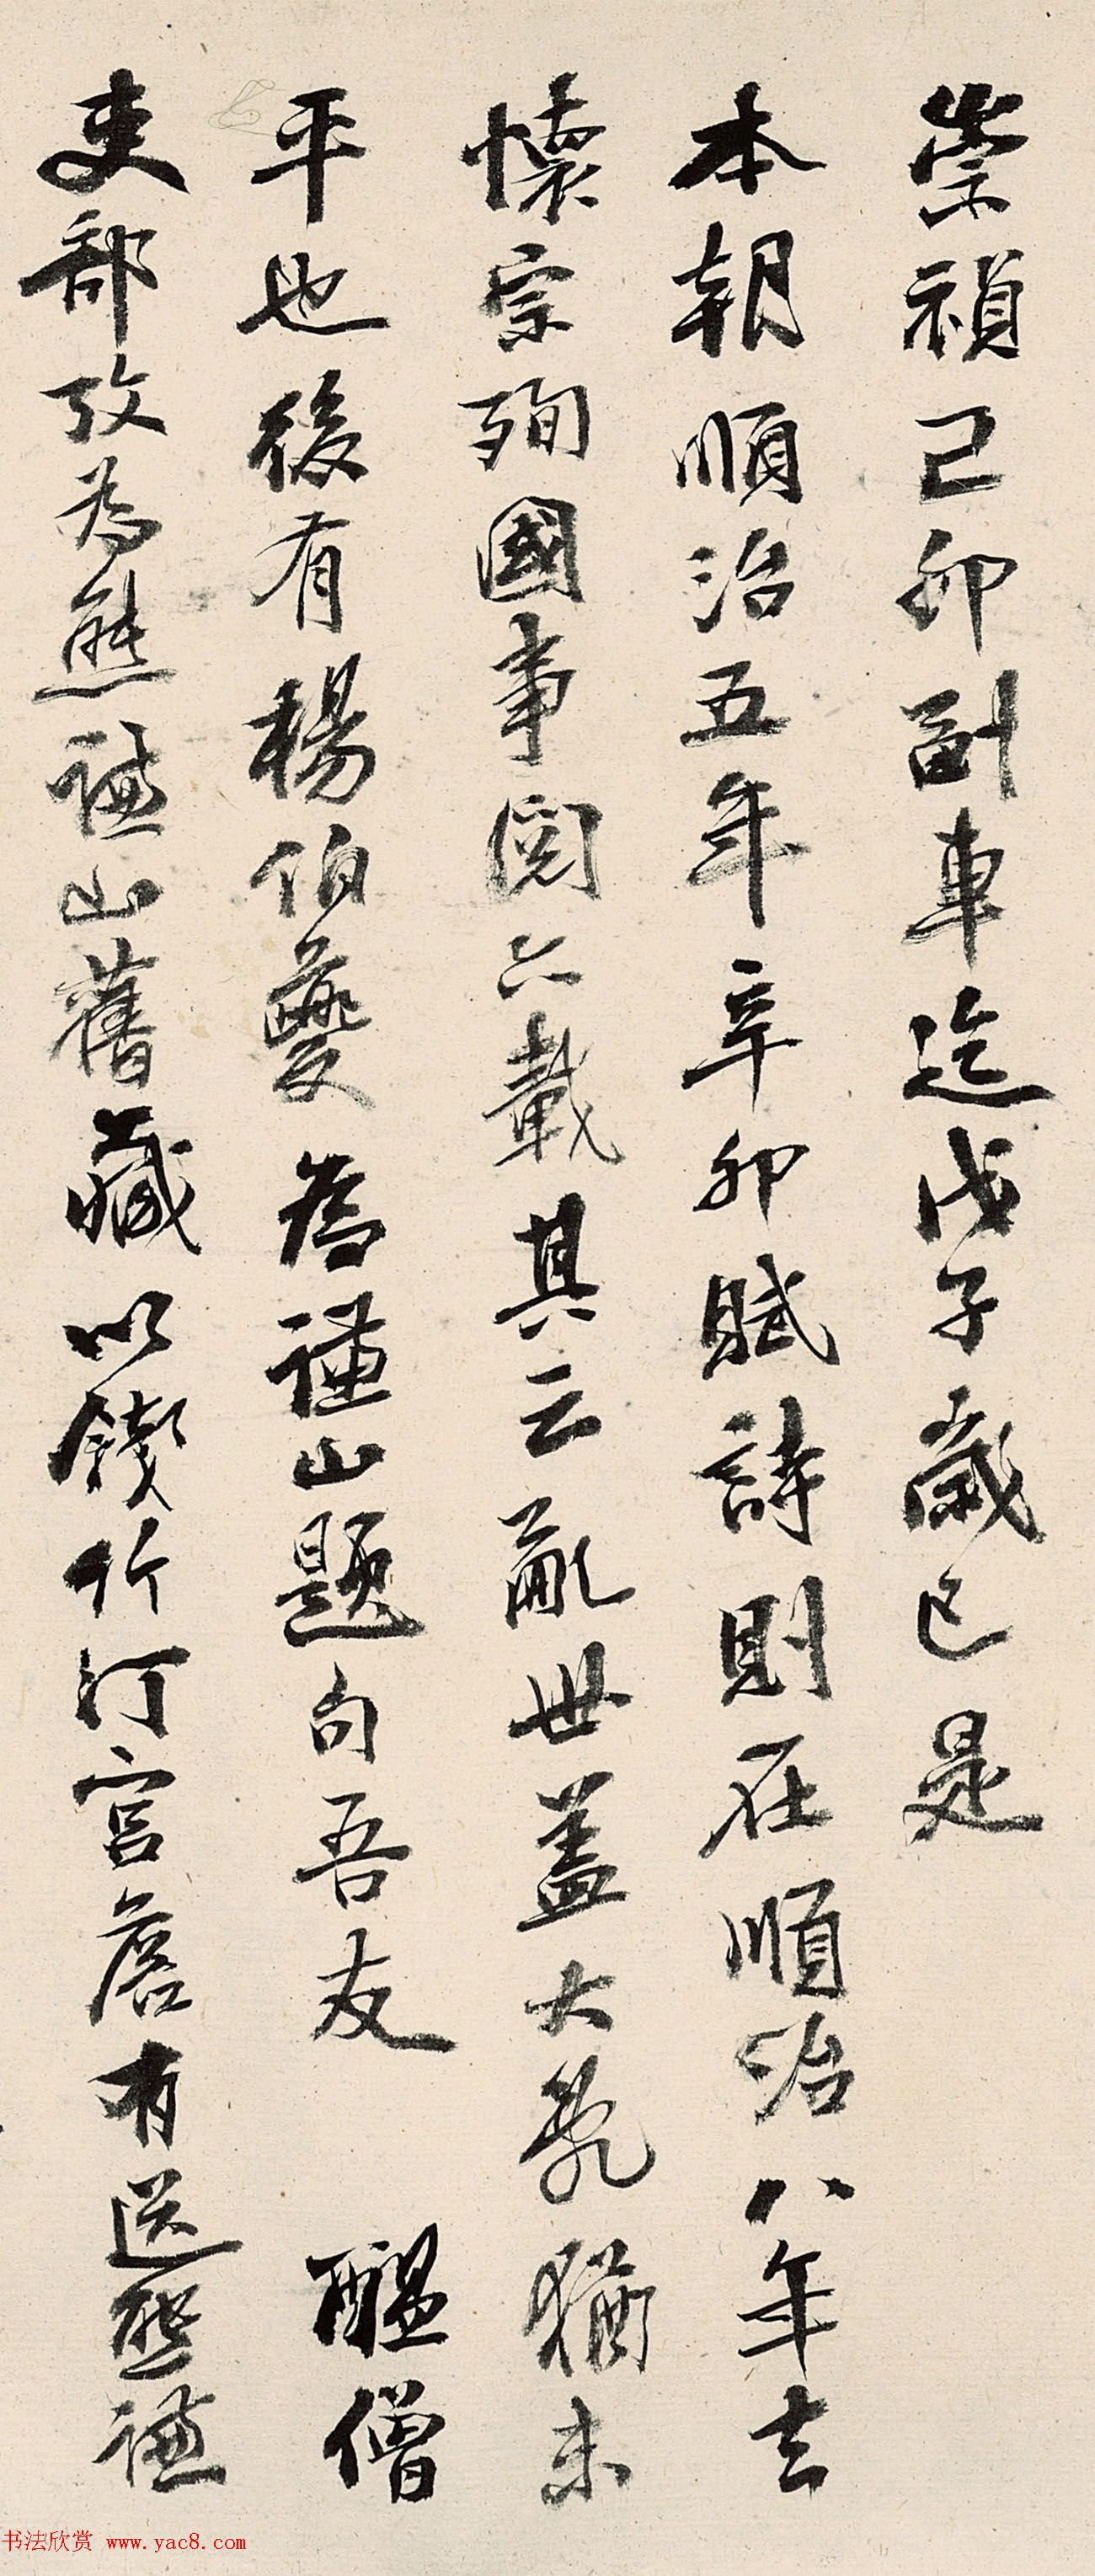 崇禎己卯副車迄戊子歲已是
本朝順治五年辛卯賦詩則在順治八年去
懷宗殉國事閱六載其云亂世蓋大亂猶未
平也後有楊伯夔為謙山題句吾友 醖僧
吏部攷為熊謙山舊藏以錢竹汀宮詹有送熊謙
书法欣赏 www.yac8.com